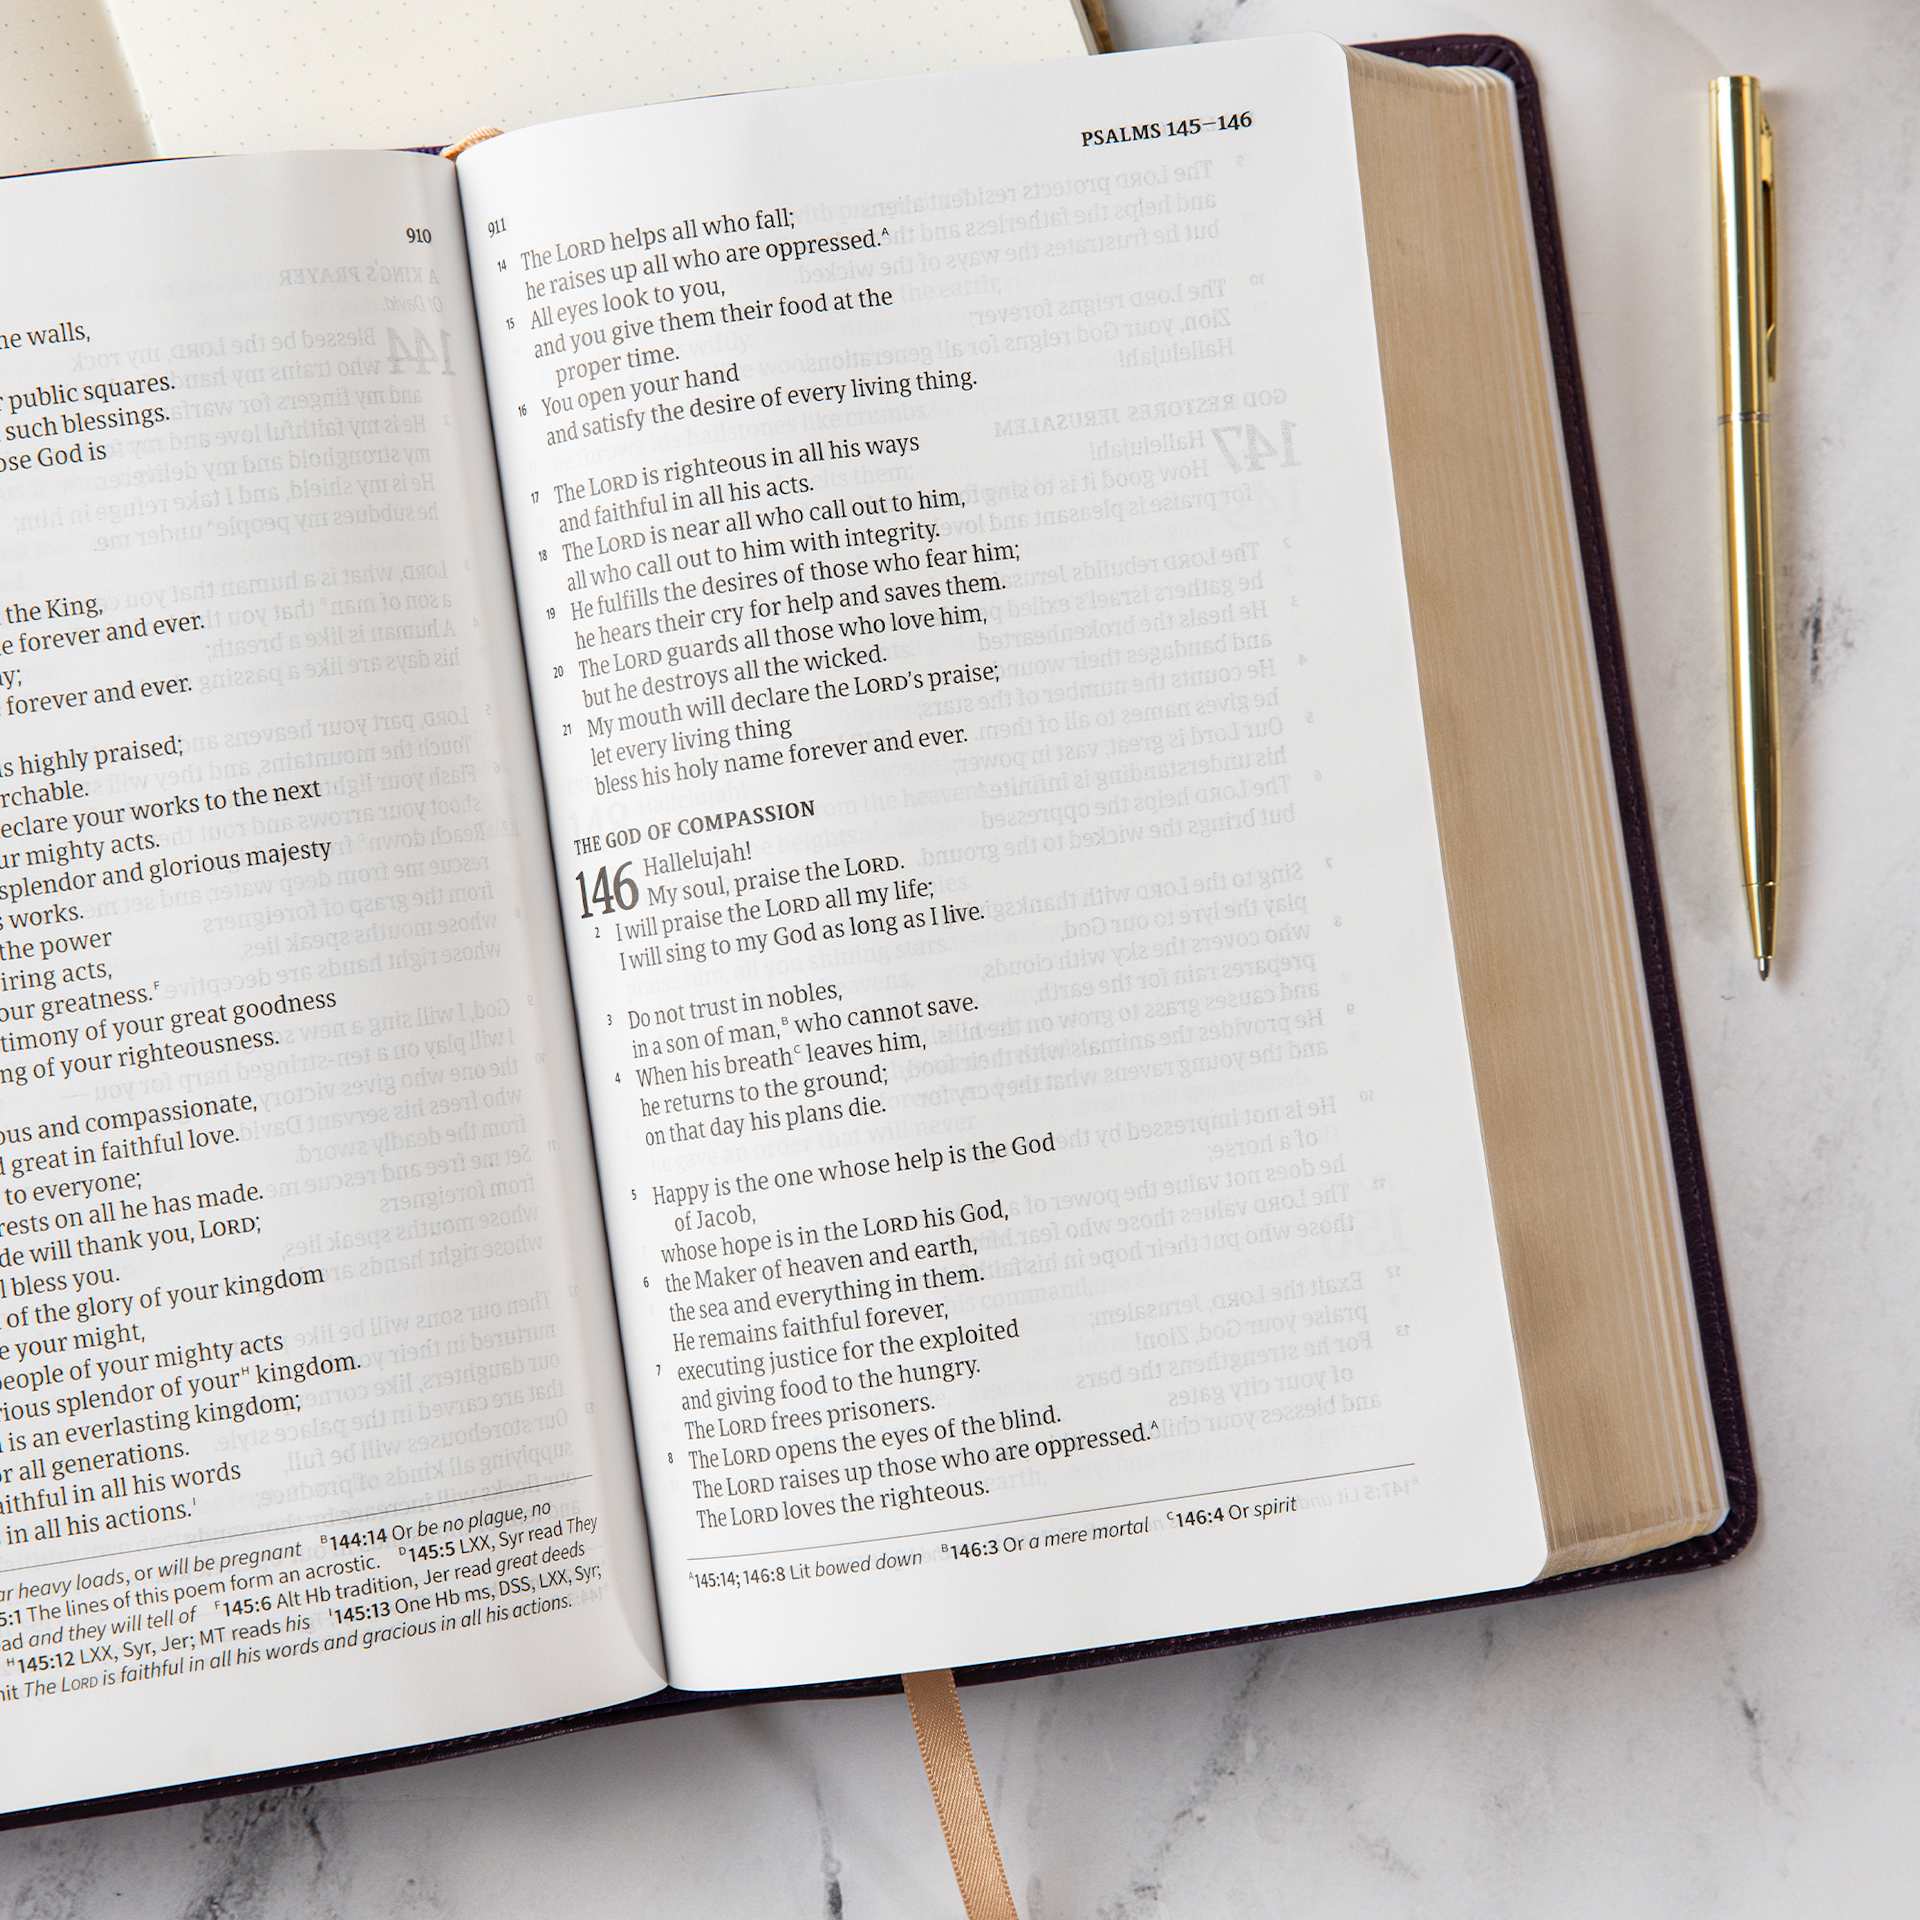 910
he walls,
public squares.
such blessings.
ose God is
the King,
e forever and ever.
y;
forever and ever.
s highly praised;
rchable.
eclare your works to the next
ur mighty acts.
splendor and glorious majesty
s works.
the power
iring acts,
our greatness.F
timony of your great goodness
ng of your righteousness.
ous and compassionate,
d great in faithful love.
to everyone;
rests on all he has made.
de will thank you, LORD;
l bless you.
of the glory of your kingdom
e your might,
people of your mighty acts
rious splendor of yourH kingdom.
is an everlasting kingdom;
or all generations.
aithful in all his words
in all his actions.I
ar heavy loads, or will be pregnant B144:14 Or be no plague, no
5:1 The lines of this poem form an acrostic. D145:5 LXX, Syr read They
ad and they will tell of F145:6 Alt Hb tradition, Jer read great deeds
H145:12 LXX, Syr, Jer; MT reads his I145:13 One Hb ms, DSS, LXX, Syr;
it The LORD is faithful in all his words and gracious in all his actions.
PSALMS 145–146
911
14 The LORD helps all who fall;
he raises up all who are oppressed.A
15 All eyes look to you,
and you give them their food at the
proper time.
16 You open your hand
and satisfy the desire of every living thing.
17 The LORD is righteous in all his ways
and faithful in all his acts.
18 The LORD is near all who call out to him,
all who call out to him with integrity.
19 He fulfills the desires of those who fear him;
he hears their cry for help and saves them.
20 The LORD guards all those who love him,
but he destroys all the wicked.
21 My mouth will declare the LORD's praise;
let every living thing
bless his holy name forever and ever.
THE GOD OF COMPASSION
146 Hallelujah!
My soul, praise the LORD.
2 I will praise the LORD all my life;
I will sing to my God as long as I live.
3 Do not trust in nobles,
in a son of man,B who cannot save.
4 When his breathC leaves him,
he returns to the ground;
on that day his plans die.
5 Happy is the one whose help is the God
of Jacob,
whose hope is in the LORD his God,
6 the Maker of heaven and earth,
the sea and everything in them.
He remains faithful forever,
7 executing justice for the exploited
and giving food to the hungry.
The LORD frees prisoners.
8 The LORD opens the eyes of the blind.
The LORD raises up those who are oppressed.A
The LORD loves the righteous.
A145:14; 146:8 Lit bowed down B146:3 Or a mere mortal C146:4 Or spirit